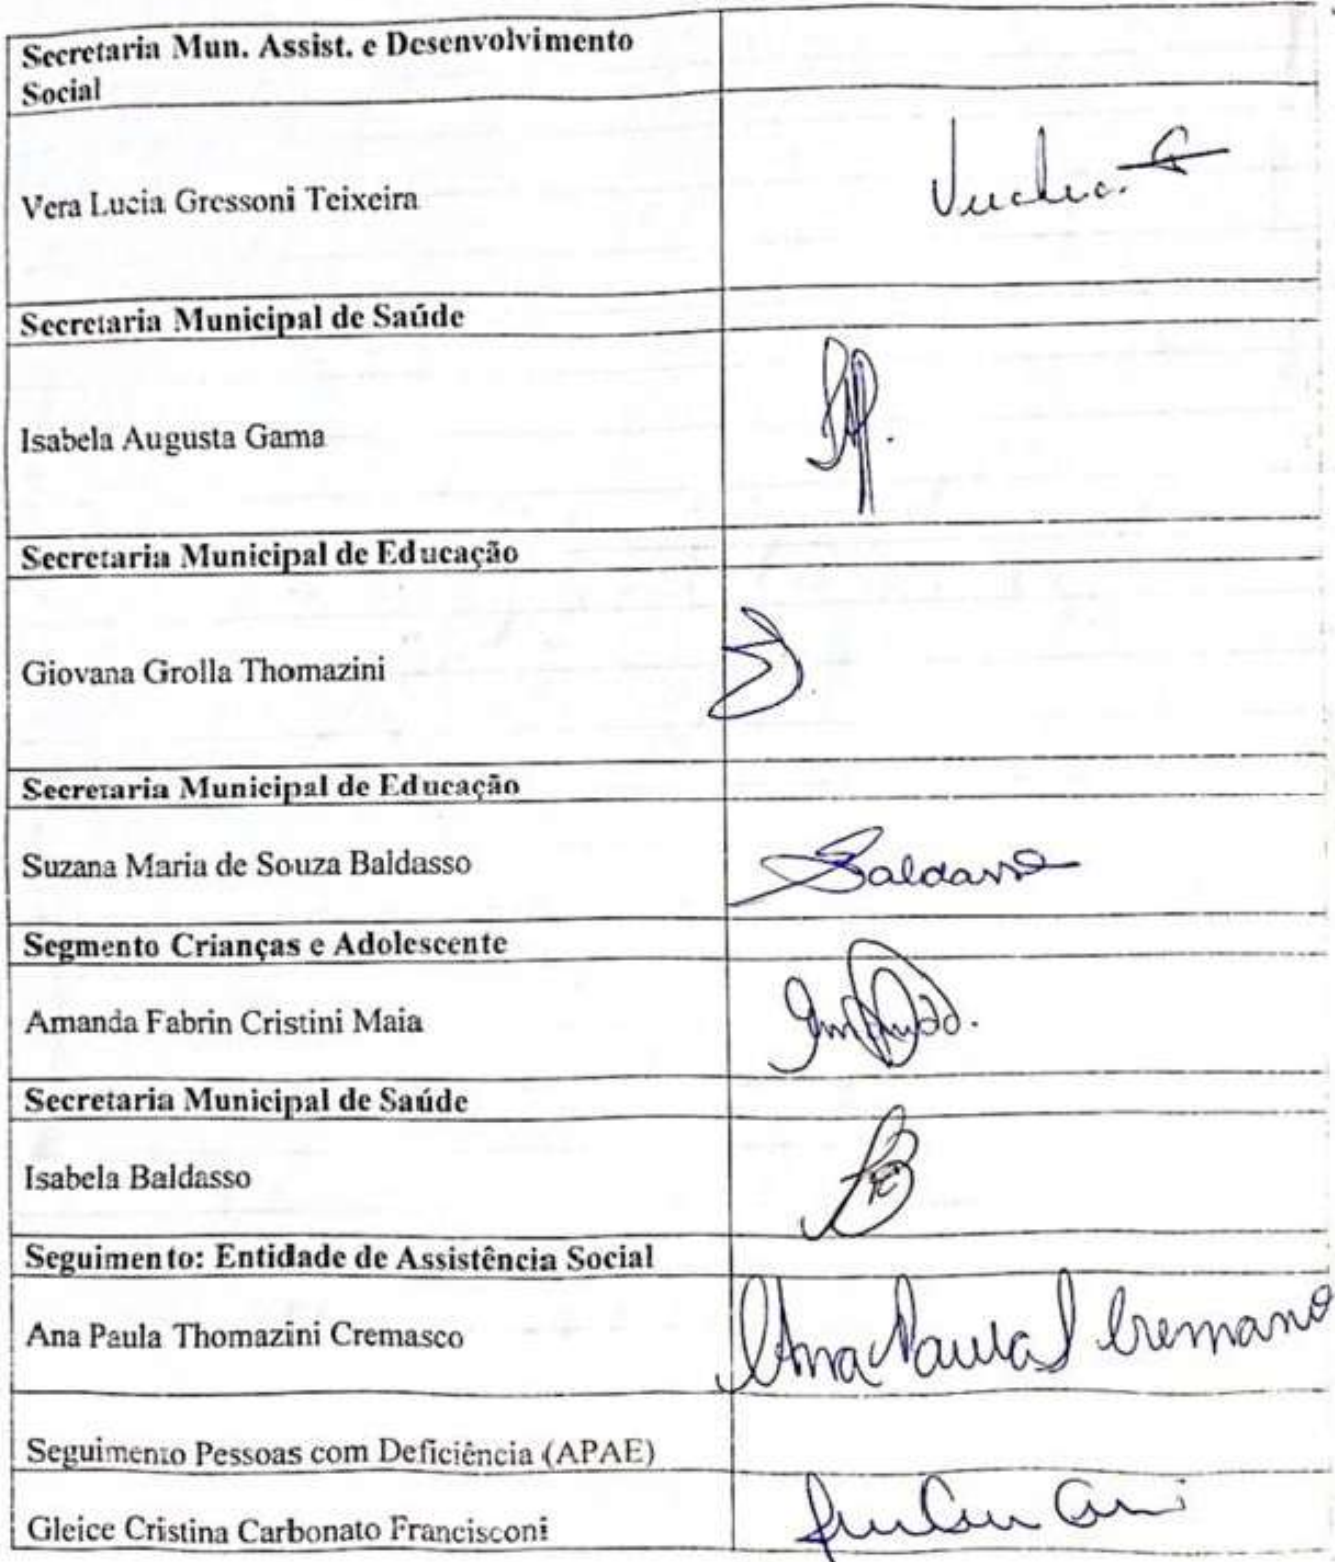 Secretaria Mun. Assist. e Desenvolvimento
Social
Vera Lucia Gressoni Teixeira
Secretaria Municipal de Saúde
Isabela Augusta Gama
Secretaria Municipal de Educação
Giovana Grolla Thomazini
Secretaria Municipal de Educação
Suzana Maria de Souza Baldasso
Baldasso
Segmento Crianças e Adolescente
Amanda Fabrin Cristini Maia
Secretaria Municipal de Saúde
Isabela Baldasso
Seguimento: Entidade de Assistência Social
Ana Paula Thomazini Cremasco
Ana Paula T Cremasco
Seguimento Pessoas com Deficiência (APAE)
Gleice Cristina Carbonato Francisconi